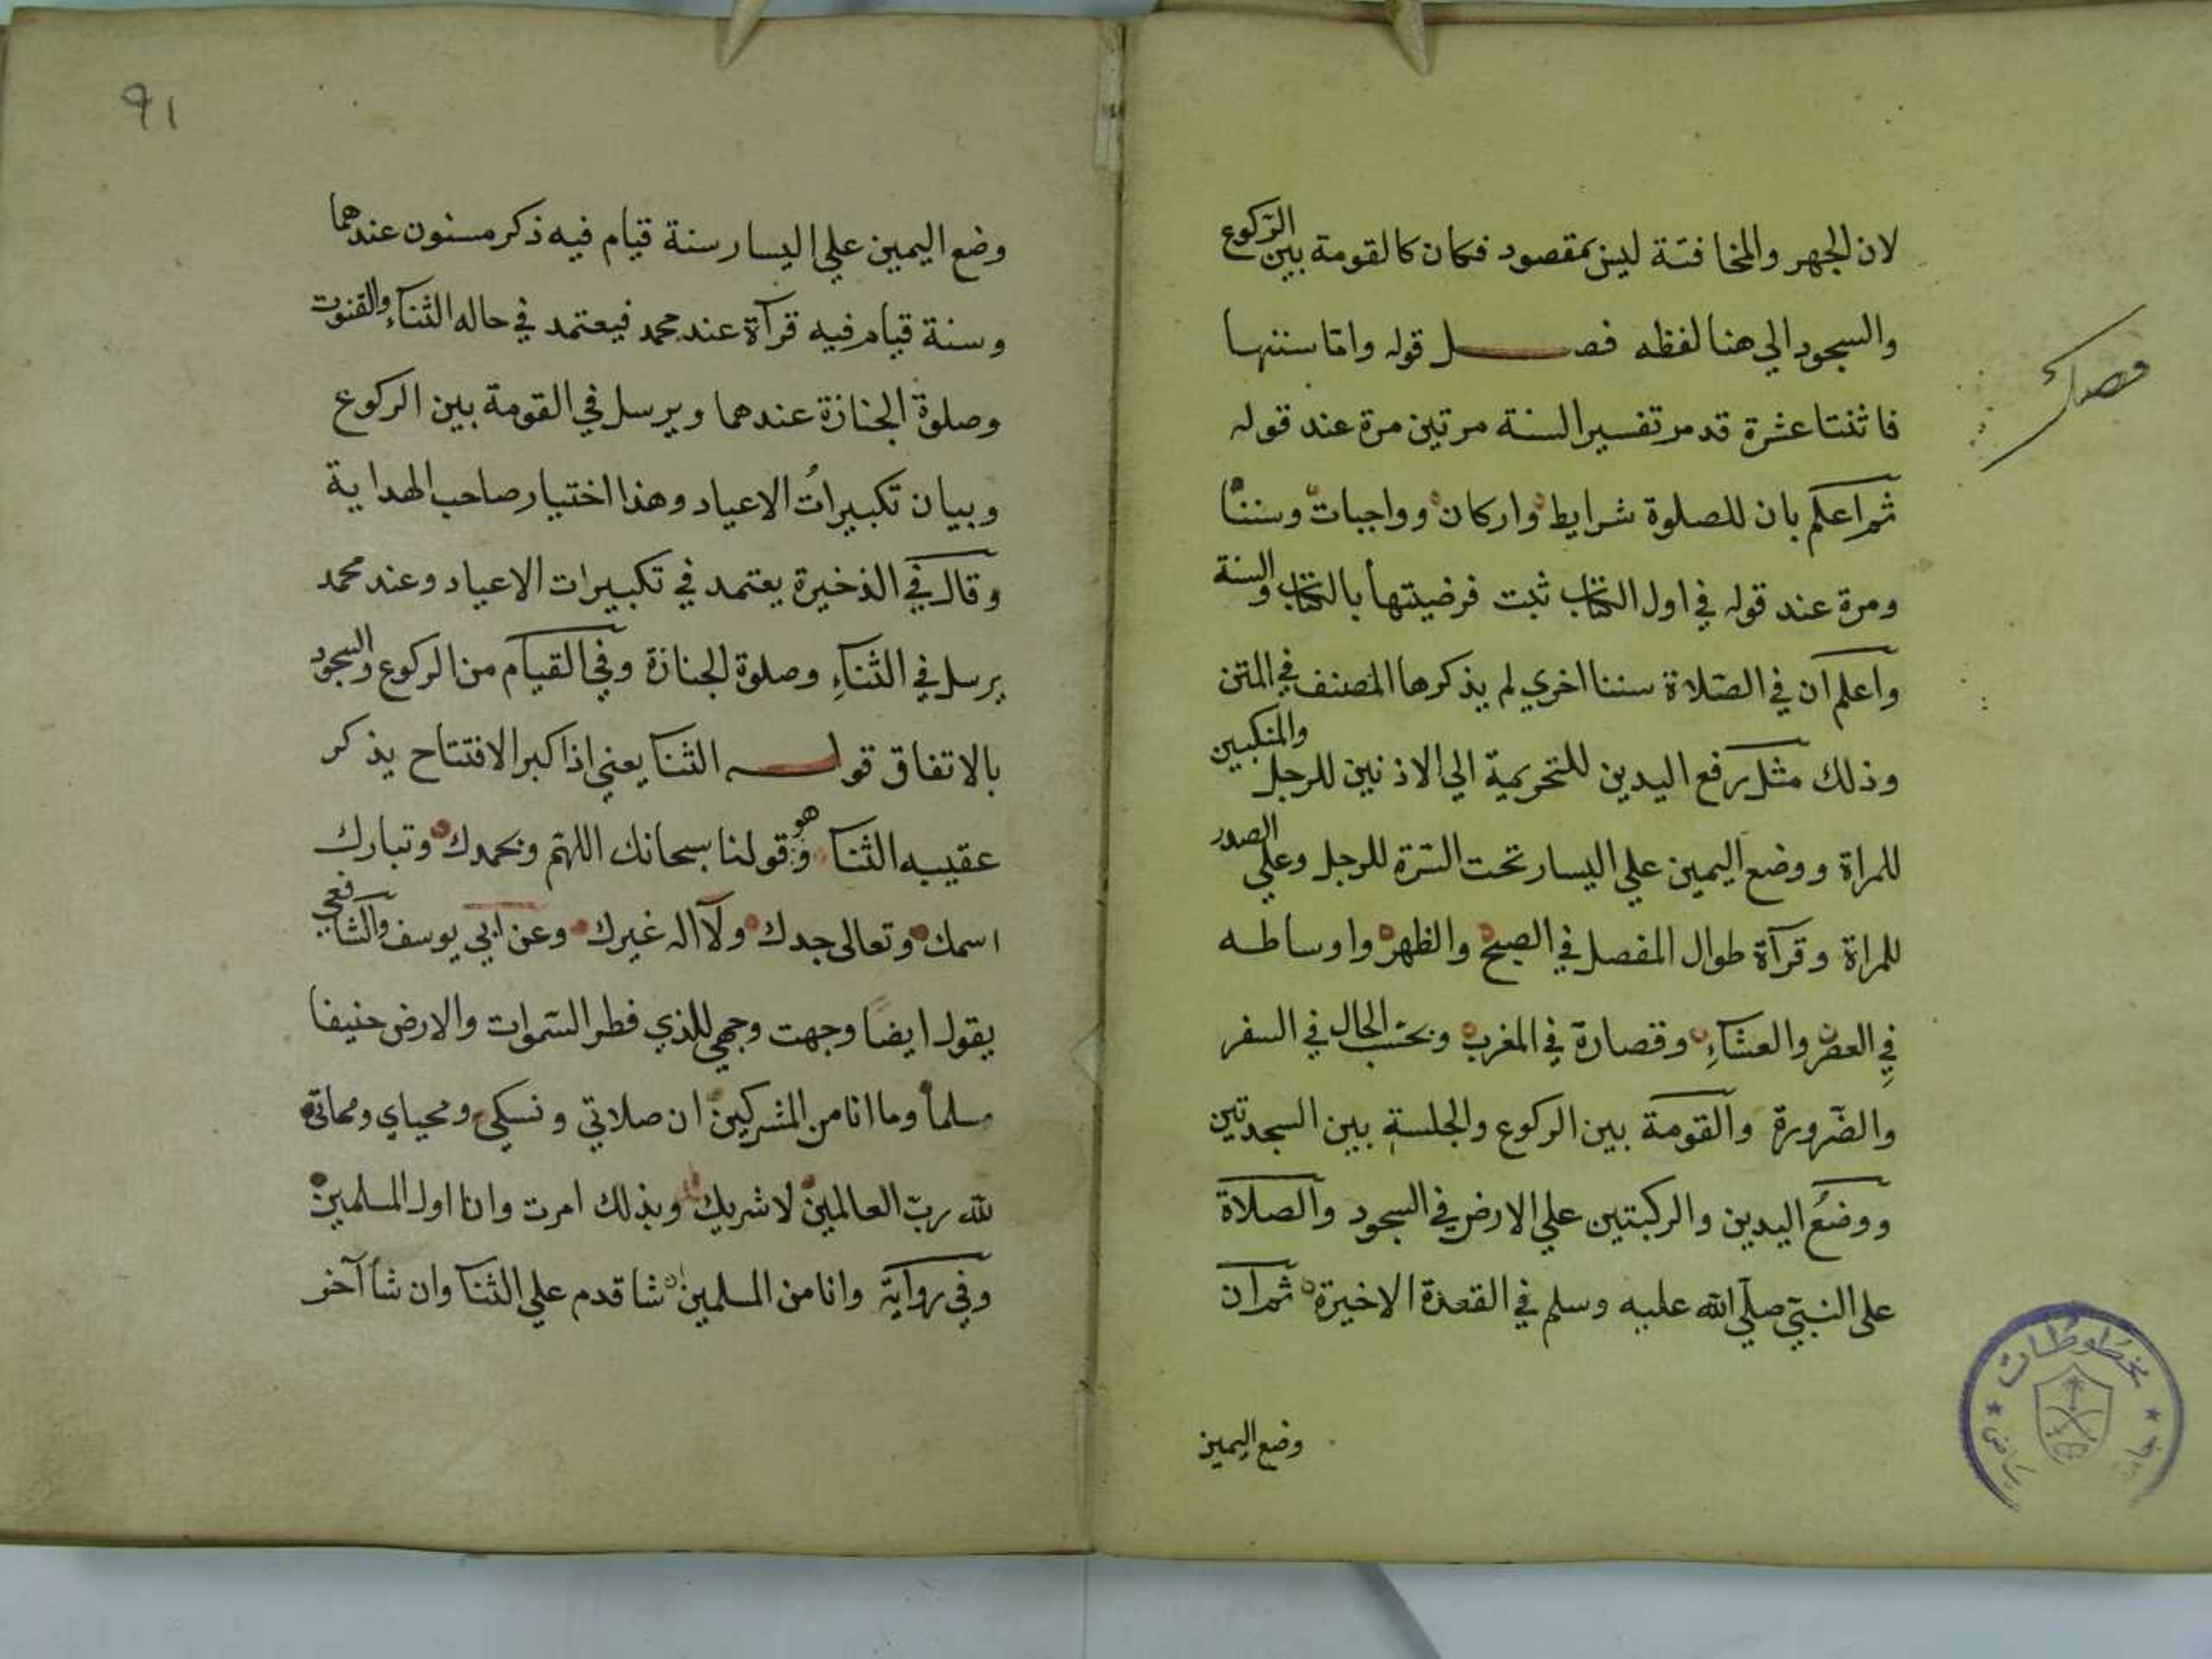 لان الجهر والمخافتة ليس بمقصود فكان كالقومة بين الركوع
والسجود الي هنا لفظه فصل قوله واما سننها
فصل
فاثنتا عشرة قد مر تفسير السنة مرتين مرة عند قوله
ثم اعلم بان للصلوة شرايط واركان وواجبات وسننا
ومرة عند قوله في اول الكتاب ثبت فرضيتها بالكتاب والسنة
واعلم ان في الصلاة سننا اخري لم يذكرها المصنف في المتن
وذلك مثل رفع اليدين للتحريمة الي الاذنين للرجل والمنكبين
للمراة ووضع اليمين علي اليسار تحت السرة للرجل وعلي الصدر
للمراة وقرآة طوال المفصل في الصبح والظهر واوساطه
في العصر والعشاء وقصارة في المغرب وبحسب الحال في السفر
والضرورة والقومة بين الركوع والجلسة بين السجدتين
ووضع اليدين والركبتين علي الارض في السجود والصلاة
علي النبي صلي الله عليه وسلم في القعدة الاخيرة ثم ان
وضع اليمين
مخطوطات
رياض
٩١
وضع اليمين علي اليسار سنة قيام فيه ذكر مسنون عندهما
وسنة قيام فيه قرآة عند محمد فيعتمد في حاله الثناء والقنوت
وصلوة الجنازة عندهما ويرسل في القومة بين الركوع
وبيان تكبيرات الاعياد وهذا اختيار صاحب الهداية
وقال في الذخيرة يعتمد في تكبيرات الاعياد وعند محمد
يرسل في الثناء وصلوة الجنازة وفي القيام من الركوع والسجود
بالاتفاق قوله الثنا يعني اذا كبر الافتتاح يذكر
عقيبه الثنا وهو قولنا سبحانك اللهم وبحمدك وتبارك
اسمك وتعالى جدك ولا اله غيرك وعن ابي يوسف والشافعي
يقول ايضا وجهت وجهي للذي فطر السموات والارض حنيفا
مسلما وما انا من المشركين ان صلاتي ونسكي ومحياي ومماتي
لله رب العالمين لا شريك له وبذلك امرت وانا اول المسلمين
وفي رواية وانا من المسلمين ان شا قدم علي الثنا وان شا آخر